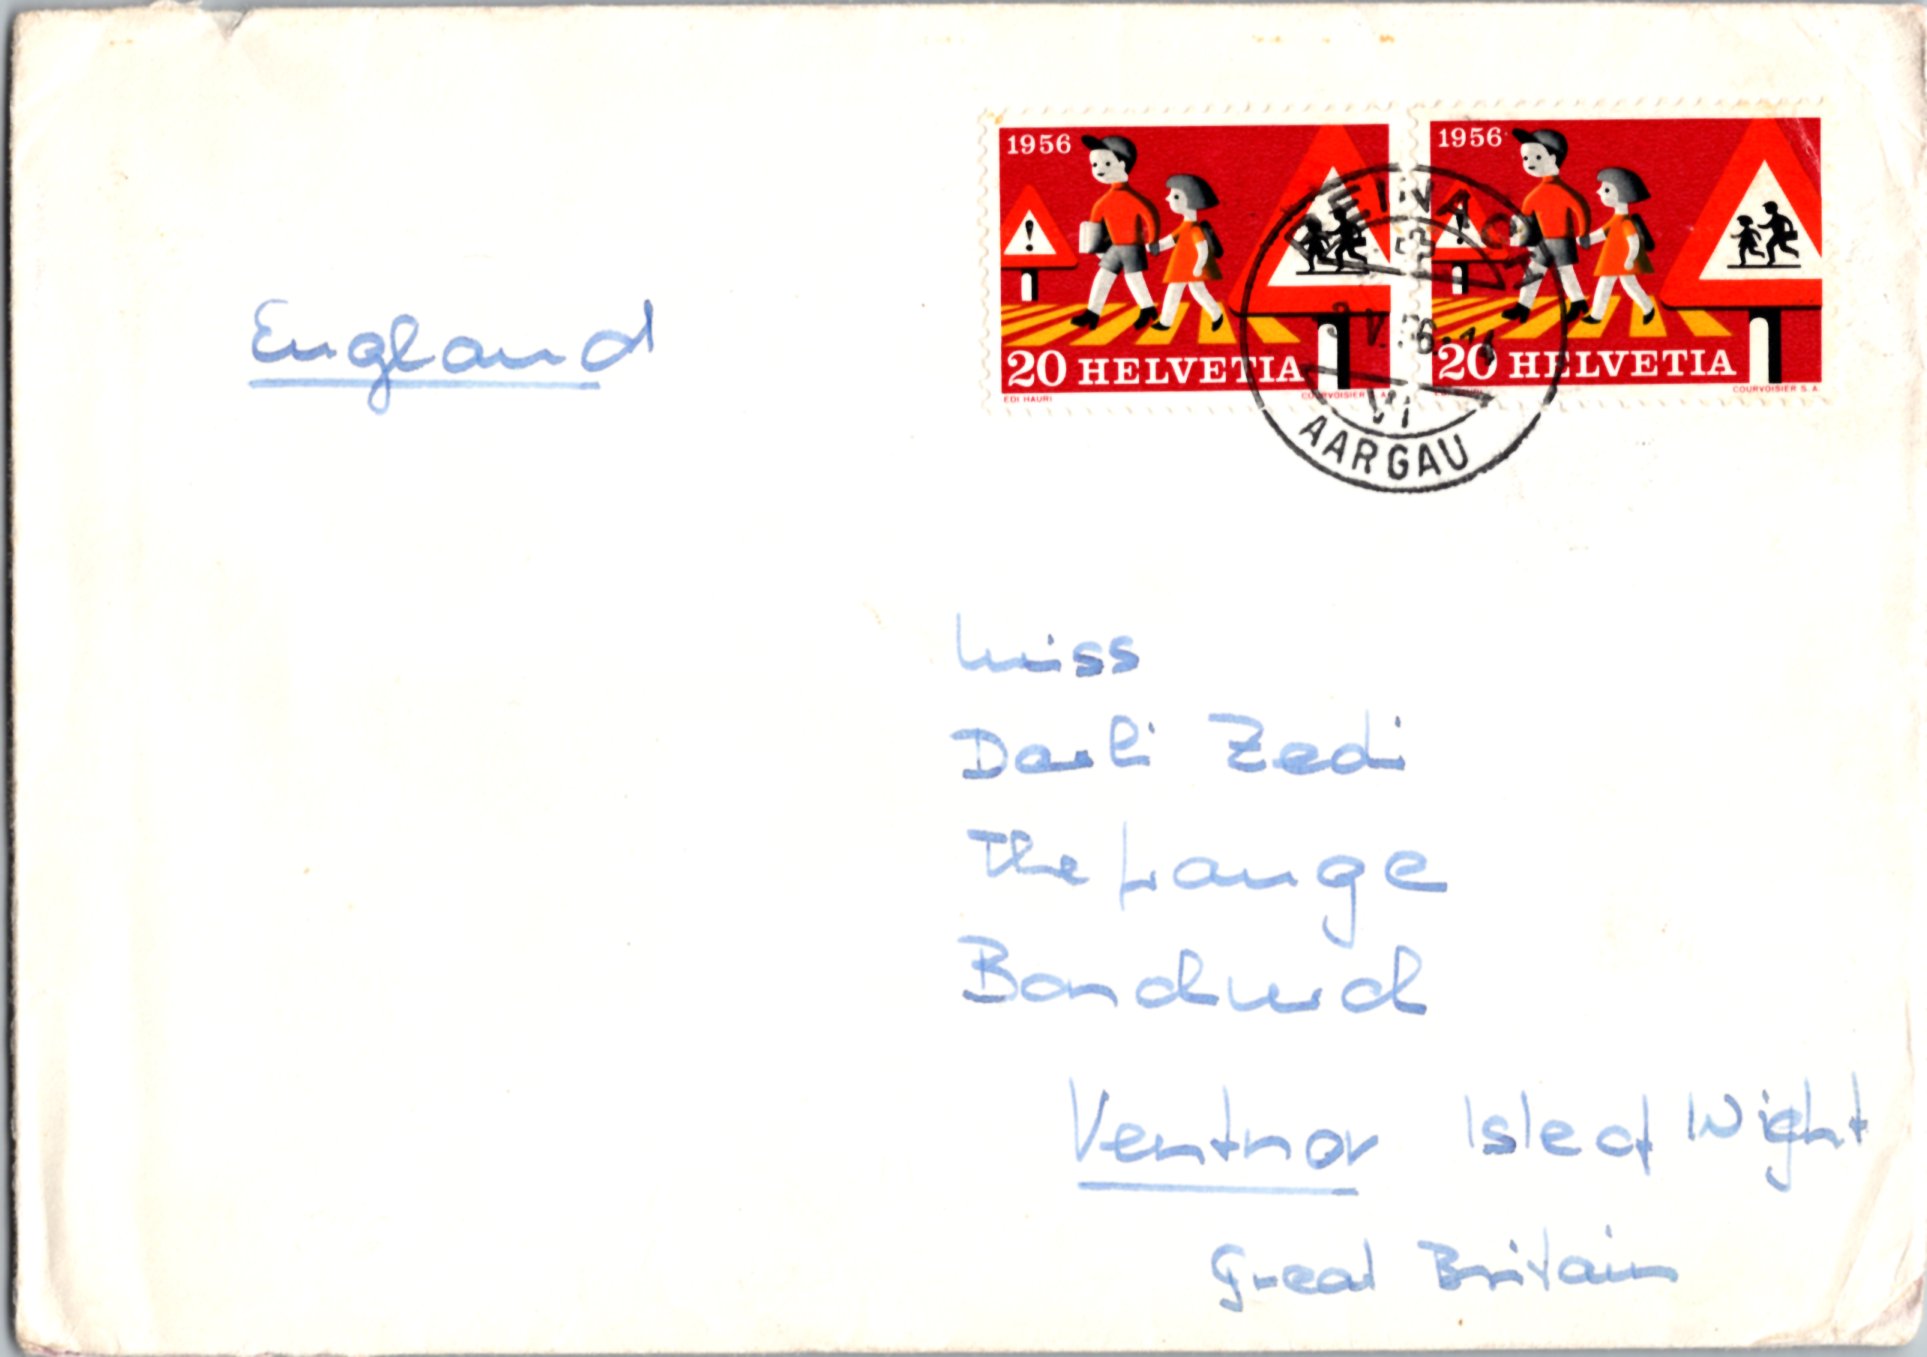 1956
20 HELVETIA
EDI HAURI
COURVOISIER S. A.
1956
20 HELVETIA
COURVOISIER S. A.
REINACH
VI
AARGAU
England
Miss
Darli Zedi
The Grange
Bonchurch
Ventnor Isle of Wight
Great Britain